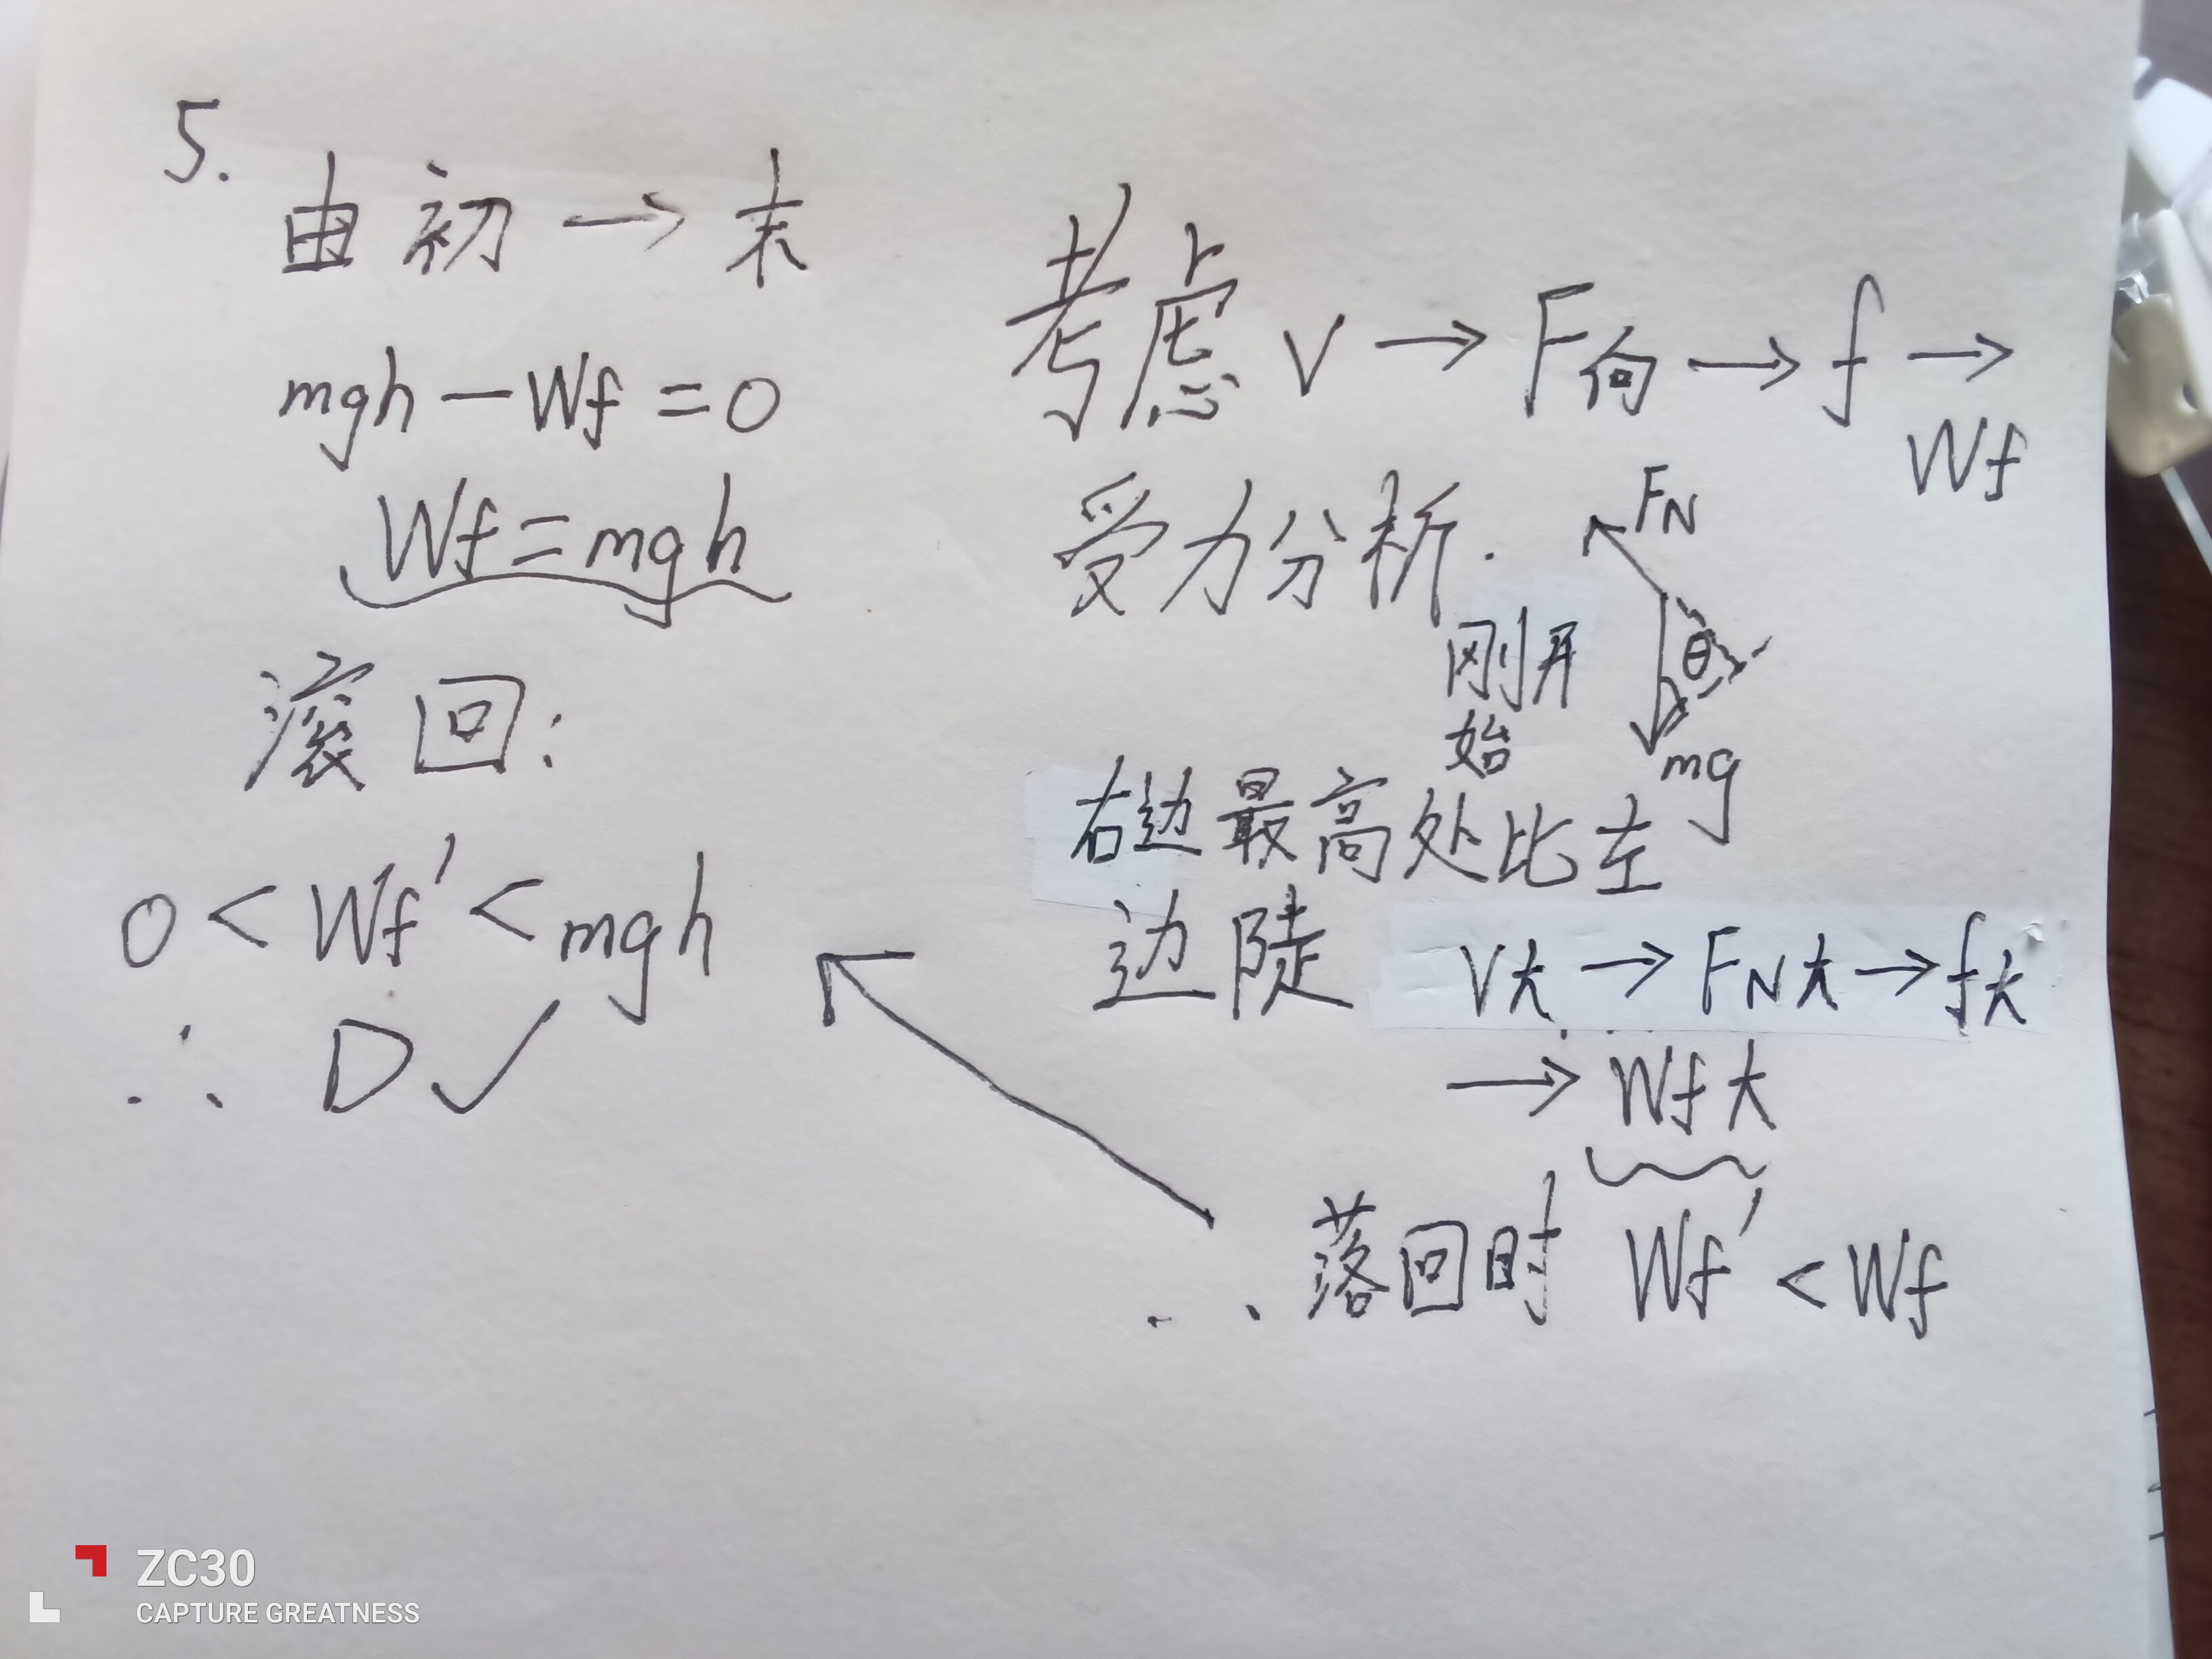 5.
由初→末
mgh-Wf=0
Wf=mgh
滚回:
0<Wf'<mgh
∴ D✓
考虑 v→F向→f→
Wf
受力分析.
FN
θ
mg
刚开
始
右边最高处比左
边陡
V大→FN大→f大
→Wf大
∴落回时 Wf'<Wf
ZC30
CAPTURE GREATNESS